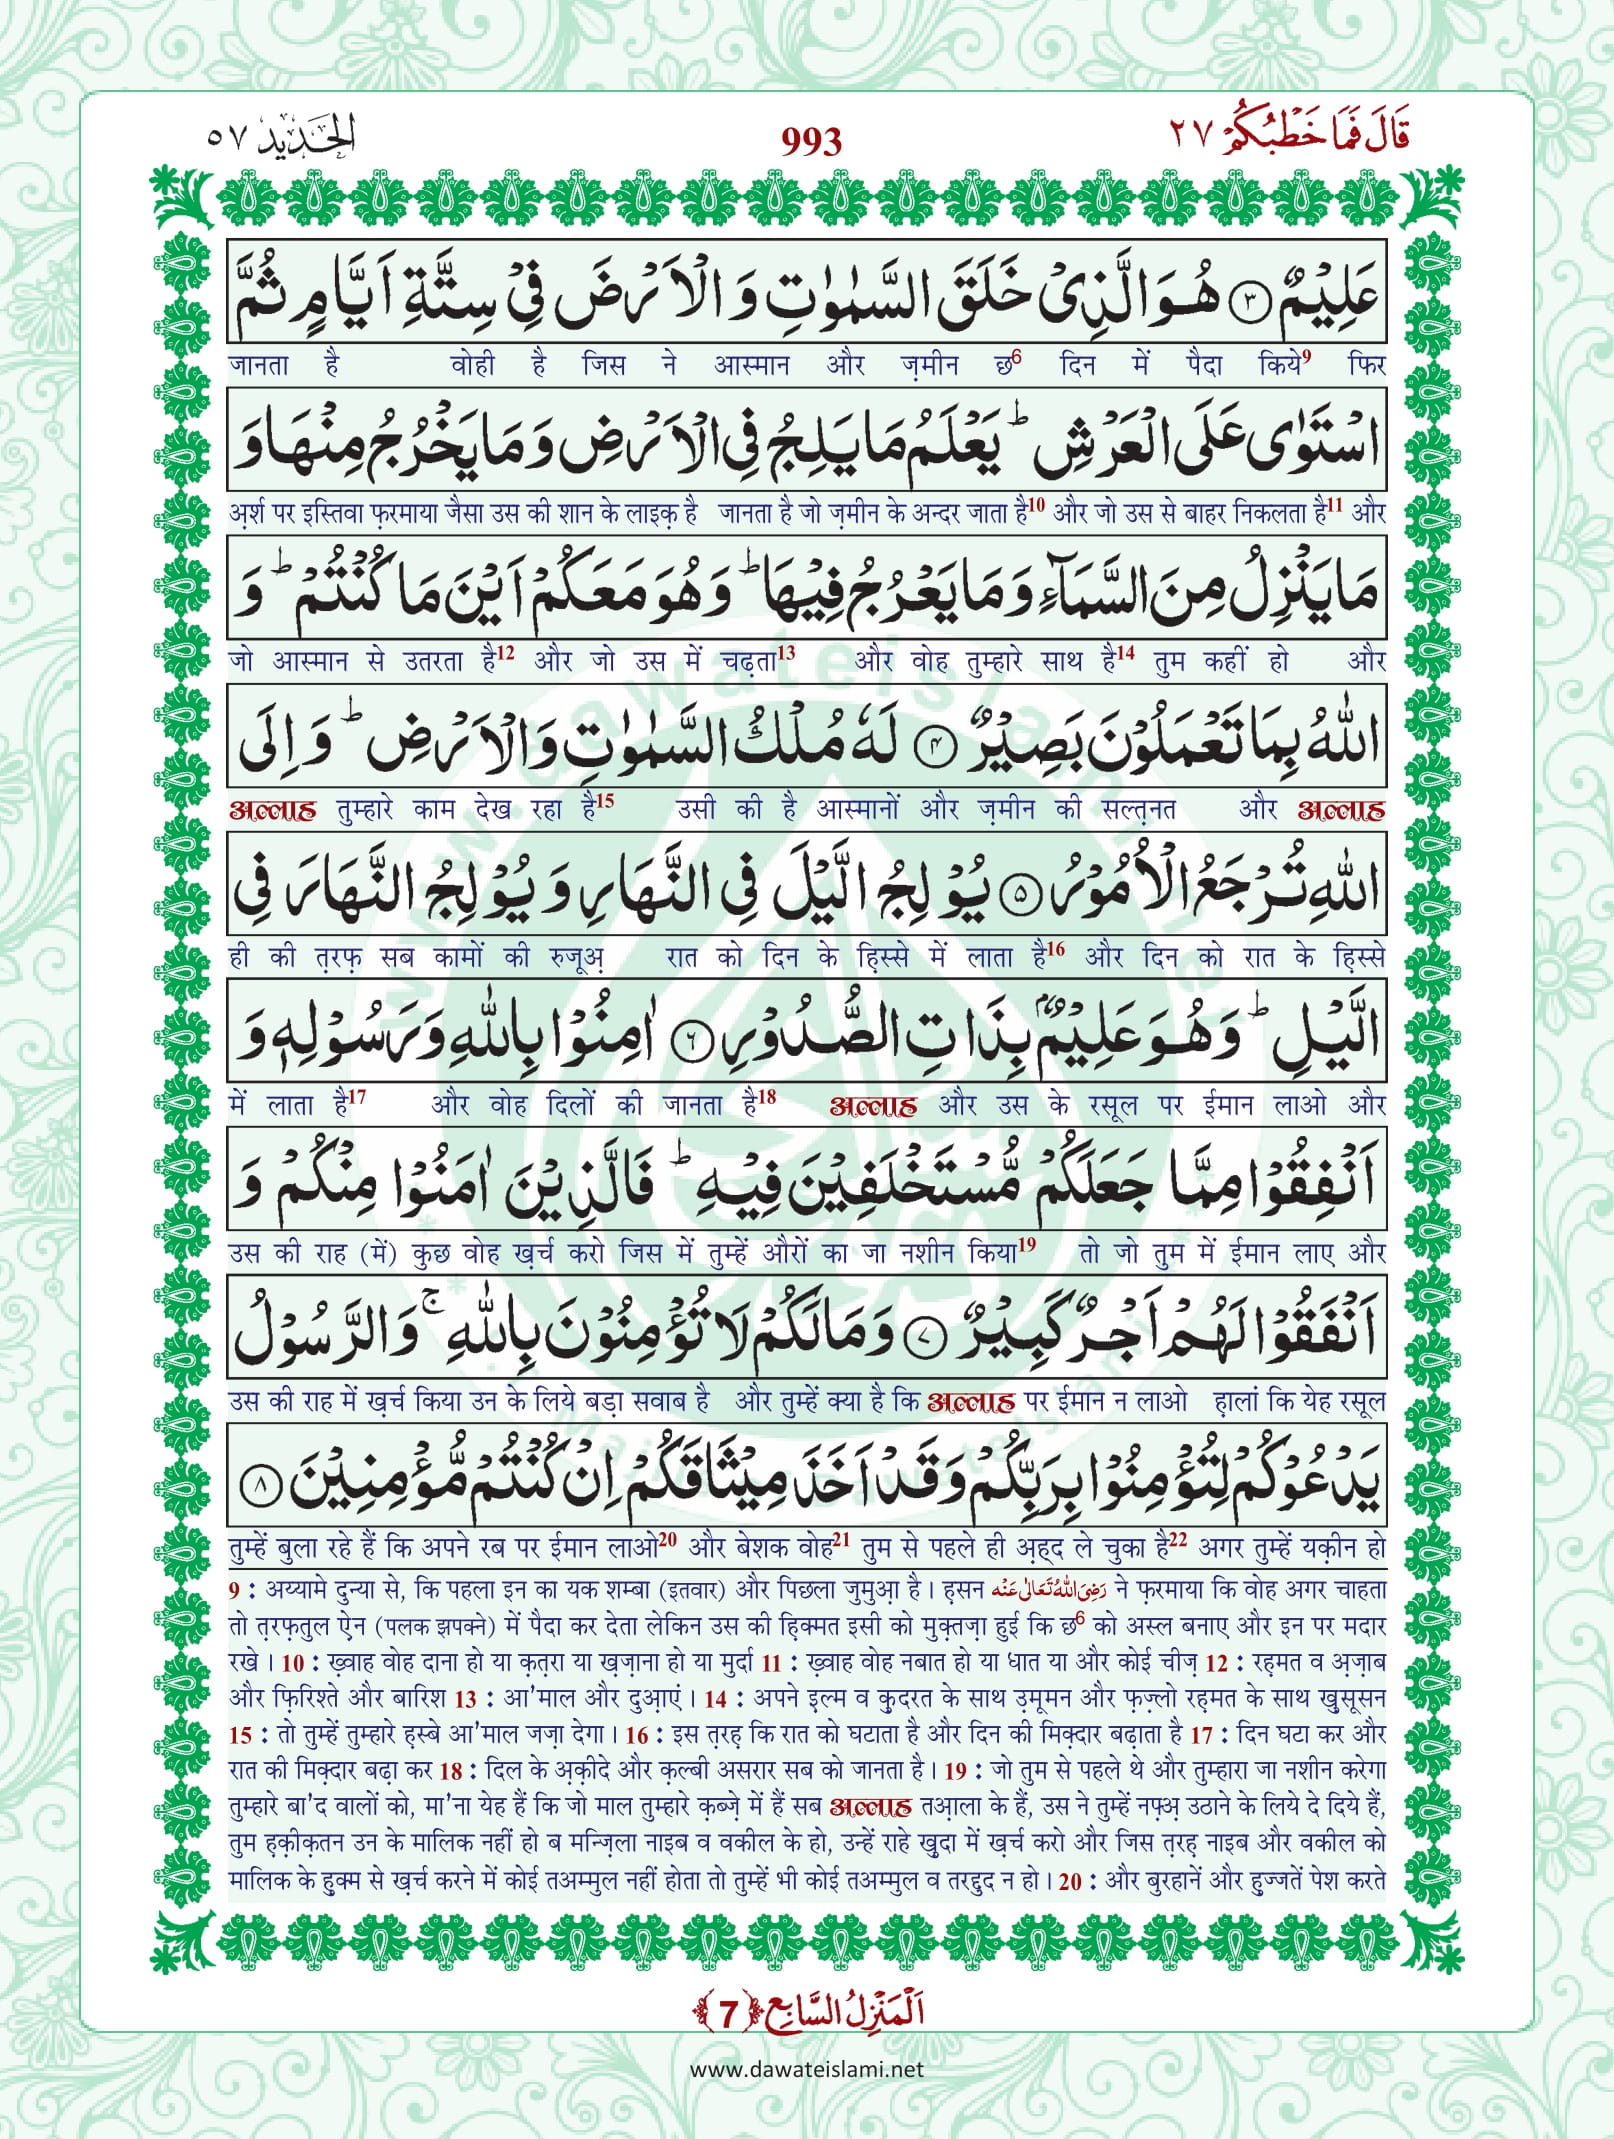 الحَدِيْد ٥٧
993
قَالَ فَمَا خَطْبُكُمْ ٢٧
عَلِیْمٌ ﴿۳﴾ هُوَ الَّذِیْ خَلَقَ السَّمٰوٰتِ وَ الْاَرْضَ فِیْ سِتَّةِ اَیَّامٍ ثُمَّ
जानता है वोही है जिस ने आस्मान और ज़मीन छ6 दिन में पैदा किये9 फिर
اسْتَوٰى عَلَى الْعَرْشِ ؕ یَعْلَمُ مَا یَلِجُ فِی الْاَرْضِ وَ مَا یَخْرُجُ مِنْهَا وَ
अ़र्श पर इस्तिवा फ़रमाया जैसा उस की शान के लाइक़ है जानता है जो ज़मीन के अन्दर जाता है10 और जो उस से बाहर निकलता है11 और
مَا یَنْزِلُ مِنَ السَّمَآءِ وَ مَا یَعْرُجُ فِیْهَا ؕ وَ هُوَ مَعَكُمْ اَیْنَ مَا كُنْتُمْ ؕ وَ
जो आस्मान से उतरता है12 और जो उस में चढ़ता13 और वोह तुम्हारे साथ है14 तुम कहीं हो और
اللّٰهُ بِمَا تَعْمَلُوْنَ بَصِیْرٌ ﴿۴﴾ لَهٗ مُلْكُ السَّمٰوٰتِ وَ الْاَرْضِ ؕ وَ اِلَى
अल्लाह तुम्हारे काम देख रहा है15 उसी की है आस्मानों और ज़मीन की सल्त़नत और अल्लाह
اللّٰهِ تُرْجَعُ الْاُمُوْرُ ﴿۵﴾ یُوْلِجُ الَّیْلَ فِی النَّهَارِ وَ یُوْلِجُ النَّهَارَ فِی
ही की त़रफ़ सब कामों की रुजूअ़ रात को दिन के हि़स्से में लाता है16 और दिन को रात के हि़स्से
الَّیْلِ ؕ وَ هُوَ عَلِیْمٌۢ بِذَاتِ الصُّدُوْرِ ﴿۶﴾ اٰمِنُوْا بِاللّٰهِ وَ رَسُوْلِهٖ وَ
में लाता है17 और वोह दिलों की जानता है18 अल्लाह और उस के रसूल पर ईमान लाओ और
اَنْفِقُوْا مِمَّا جَعَلَكُمْ مُّسْتَخْلَفِیْنَ فِیْهِ ؕ فَالَّذِیْنَ اٰمَنُوْا مِنْكُمْ وَ
उस की राह (में) कुछ वोह ख़र्च करो जिस में तुम्हें औरों का जा नशीन किया19 तो जो तुम में ईमान लाए और
اَنْفَقُوْا لَهُمْ اَجْرٌ كَبِیْرٌ ﴿۷﴾ وَ مَا لَكُمْ لَا تُؤْمِنُوْنَ بِاللّٰهِ ۚ وَ الرَّسُوْلُ
उस की राह में ख़र्च किया उन के लिये बड़ा सवाब है और तुम्हें क्या है कि अल्लाह पर ईमान न लाओ हालां कि येह रसूल
یَدْعُوْكُمْ لِتُؤْمِنُوْا بِرَبِّكُمْ وَ قَدْ اَخَذَ مِیْثَاقَكُمْ اِنْ كُنْتُمْ مُّؤْمِنِیْنَ ﴿۸﴾
तुम्हें बुला रहे हैं कि अपने रब पर ईमान लाओ20 और बेशक वोह21 तुम से पहले ही अ़ह्द ले चुका है22 अगर तुम्हें यक़ीन हो
9 : अय्यामे दुन्या से, कि पहला इन का यक शम्बा (इतवार) और पिछला जुमुआ़ है। ह़सन رَضِیَ اللّٰهُ تَعَالٰی عَنْه ने फ़रमाया कि वोह अगर चाहता
तो त़रफ़तुल ऐन (पलक झपक्ने) में पैदा कर देता लेकिन उस की हि़क्मत इसी को मुक़्तज़ा हुई कि छ6 को अस्ल बनाए और इन पर मदार
रखे। 10 : ख़्वाह वोह दाना हो या क़त़रा या ख़ज़ाना हो या मुर्दा 11 : ख़्वाह वोह नबात हो या धात या और कोई चीज़ 12 : रह़मत व अ़ज़ाब
और फ़िरिश्ते और बारिश 13 : आ'माल और दुआ़एं। 14 : अपने इ़ल्म व क़ुदरत के साथ उ़मूमन और फ़ज़्लो रह़मत के साथ ख़ुसूसन
15 : तो तुम्हें तुम्हारे ह़स्बे आ'माल जज़ा देगा। 16 : इस त़रह़ कि रात को घटाता है और दिन की मिक़्दार बढ़ाता है 17 : दिन घटा कर और
रात की मिक़्दार बढ़ा कर 18 : दिल के अ़क़ीदे और क़ल्बी असरार सब को जानता है। 19 : जो तुम से पहले थे और तुम्हारा जा नशीन करेगा
तुम्हारे बा'द वालों को, मा'ना येह हैं कि जो माल तुम्हारे क़ब्ज़े में हैं सब अल्लाह तआ़ला के हैं, उस ने तुम्हें नफ़्अ़ उठाने के लिये दे दिये हैं,
तुम ह़क़ीक़तन उन के मालिक नहीं हो ब मन्ज़िला नाइब व वकील के हो, उन्हें राहे ख़ुदा में ख़र्च करो और जिस त़रह़ नाइब और वकील को
मालिक के हु़क्म से ख़र्च करने में कोई तअम्मुल नहीं होता तो तुम्हें भी कोई तअम्मुल व तरद्दुद न हो। 20 : और बुरहानें और हु़ज्जतें पेश करते
اَلْمَنْزِلُ السَّابِع ﴿7﴾
www.dawateislami.net